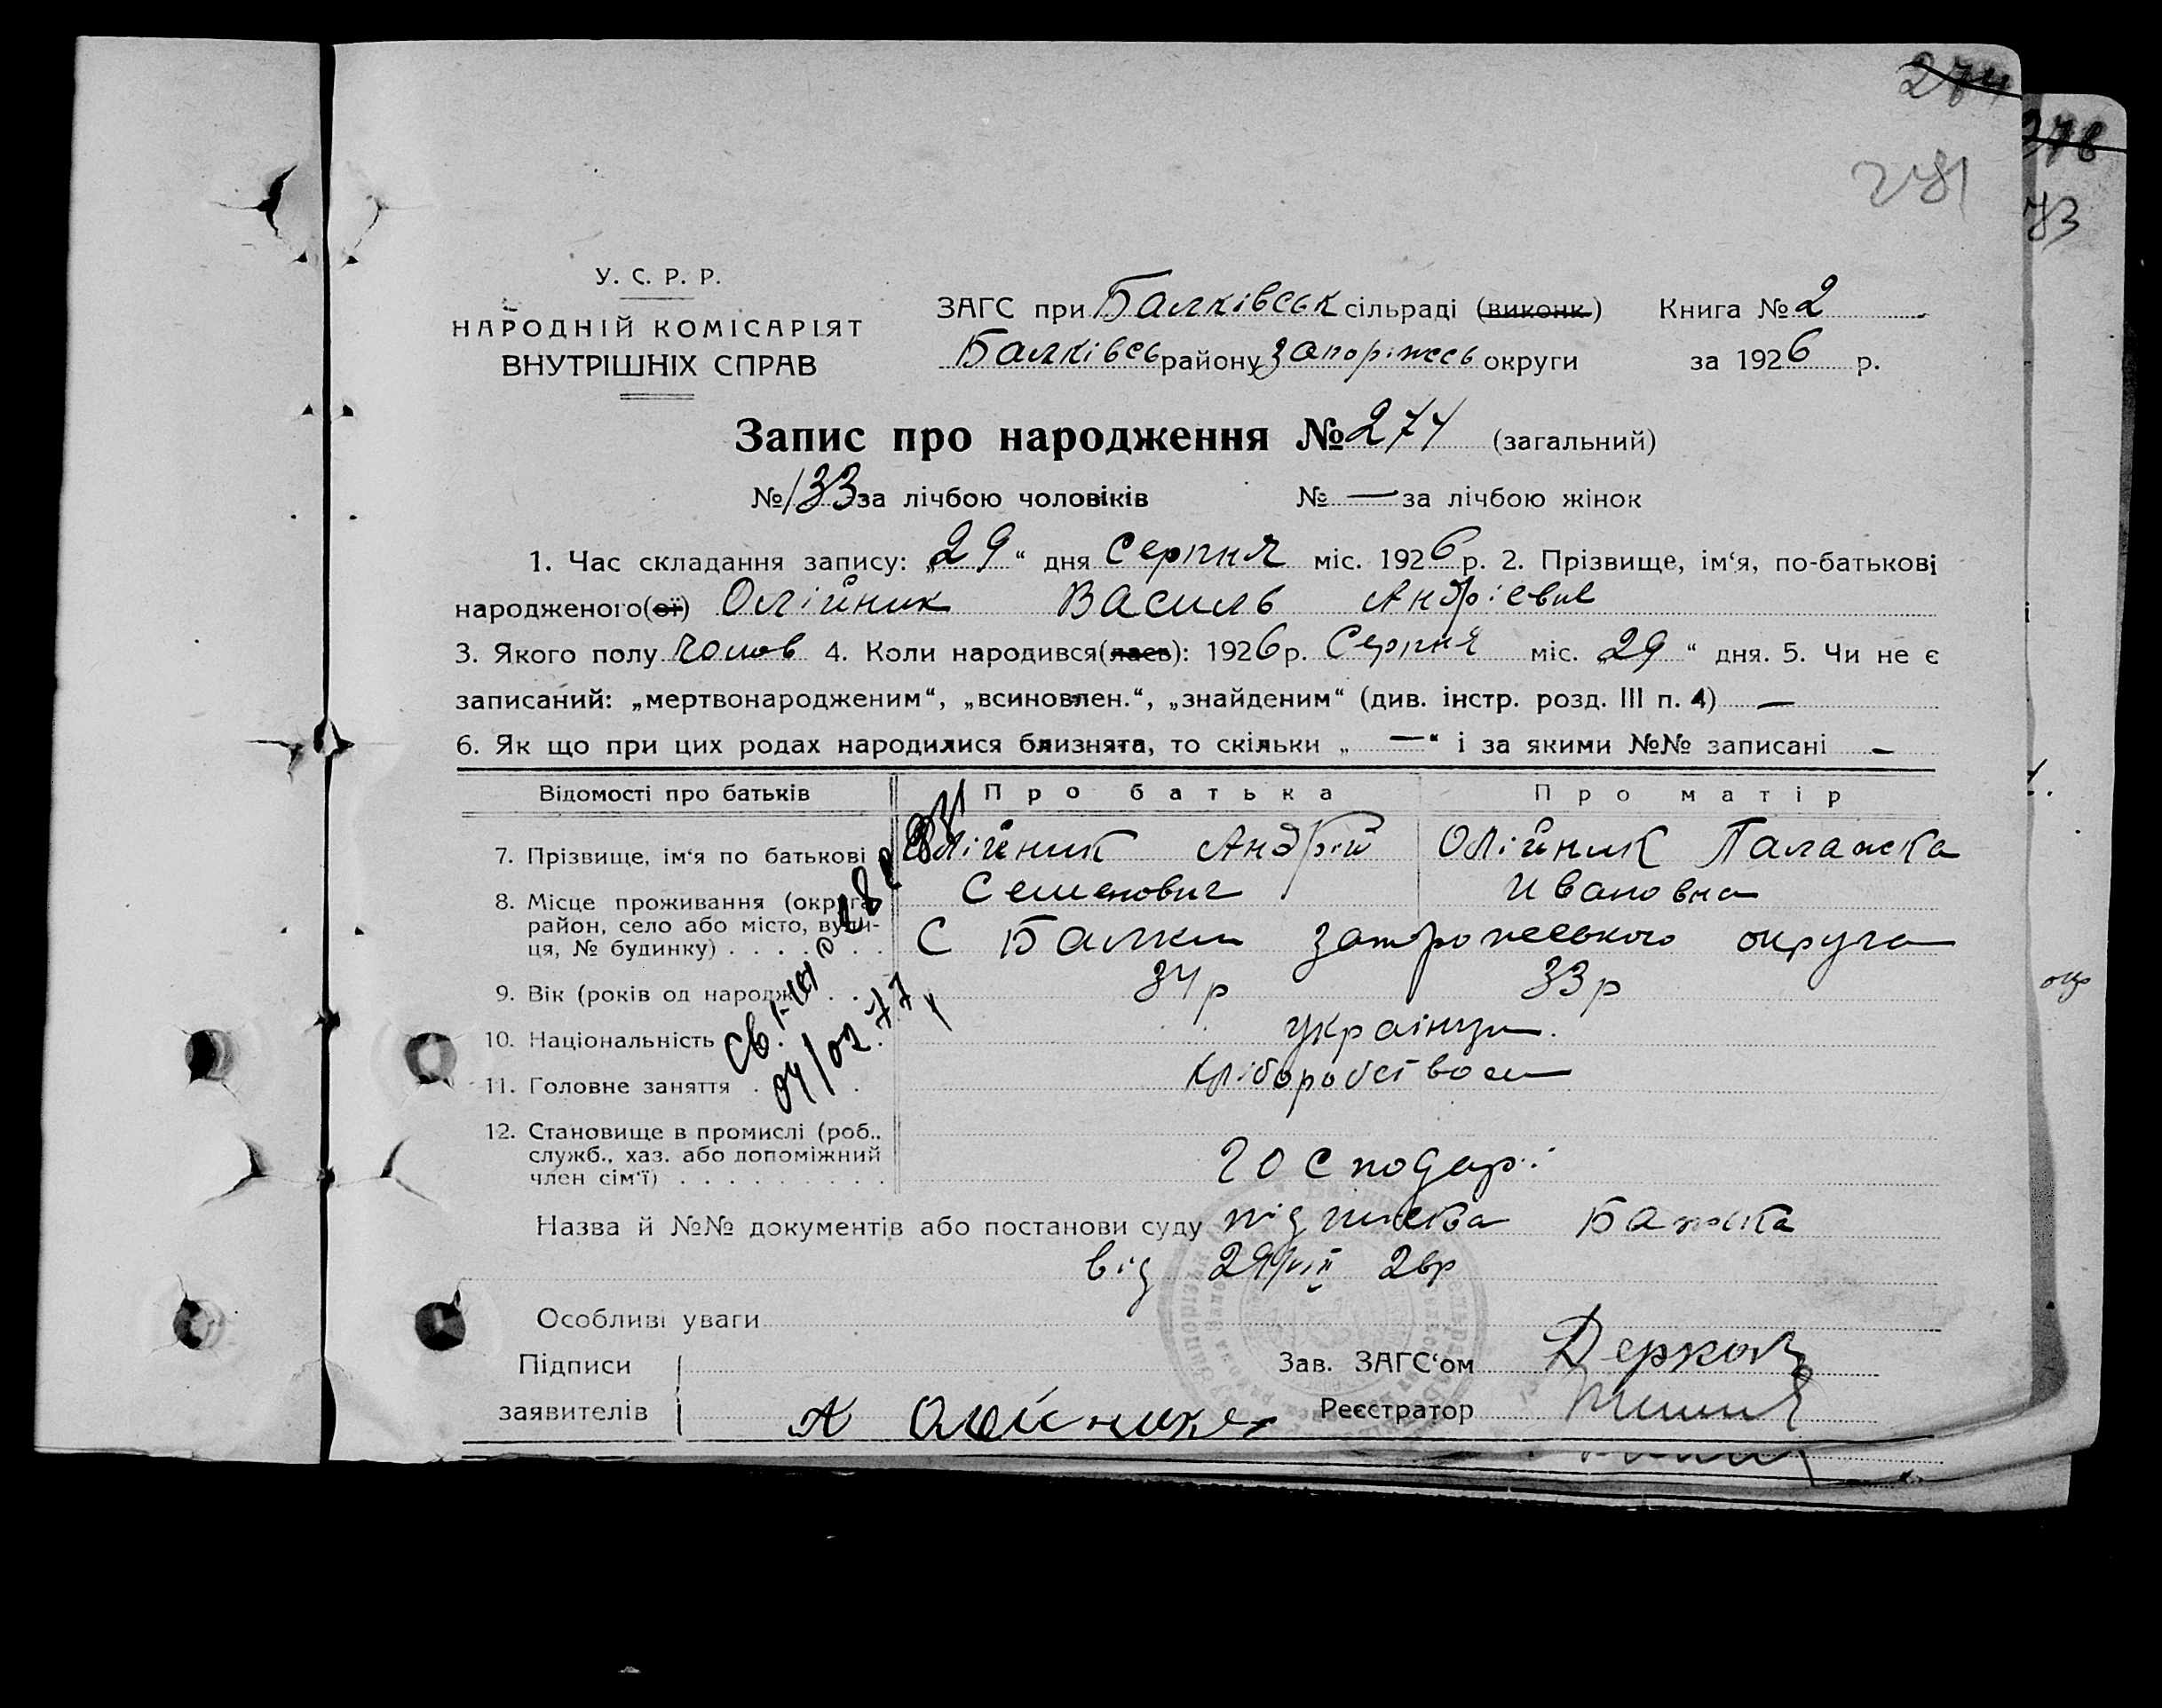 274
278
271
73
У. С. Р. Р.
НАРОДНІЙ КОМІСАРІЯТ
ВНУТРІШНІХ СПРАВ
ЗАГС при Балківськ сільраді (виконк.) Книга № 2
Балківсь району Запоріжсь округи за 1926 р.
Запис про народження № 274 (загальний)
№ 133 за лічбою чоловіків № — за лічбою жінок
1. Час складання запису: „29“ дня Серпня міс. 1926 р. 2. Прізвище, ім‘я, по-батькові
народженого(ої) Олійник Василь Андрієвич
3. Якого полу чолов 4. Коли народився(лась): 1926 р. Серпня міс. „29“ дня. 5. Чи не є
записаний: „мертвонародженим“, „всиновлен.“, „знайденим“ (див. інстр. розд. III п. 4) —
6. Як що при цих родах народилися близнята, то скільки „—“ і за якими №№ записані —
Відомості про батьків Про батька Про матір
7. Прізвище, ім‘я по батькові Олійник Андрій Олійник Палажка
Семенович Ивановна
8. Місце проживання (округа
район, село або місто, вули-
ця, № будинку) . . . . . . . С Балки Запорожського округа
9. Вік (років од народж. . . 34 р 33 р
10. Національність українци.
11. Головне заняття . . . хліборобством
12. Становище в промислі (роб.,
служб., хаз. або допоміжний
член сім‘ї) . . . . . . . . . господарі
04/02.77
Назва й №№ документів або постанови суду підписка Батька
від 29/VIII 26р
Особливі уваги
Підписи Зав. ЗАГС‘ом
заявителів А Олейник Реєстратор